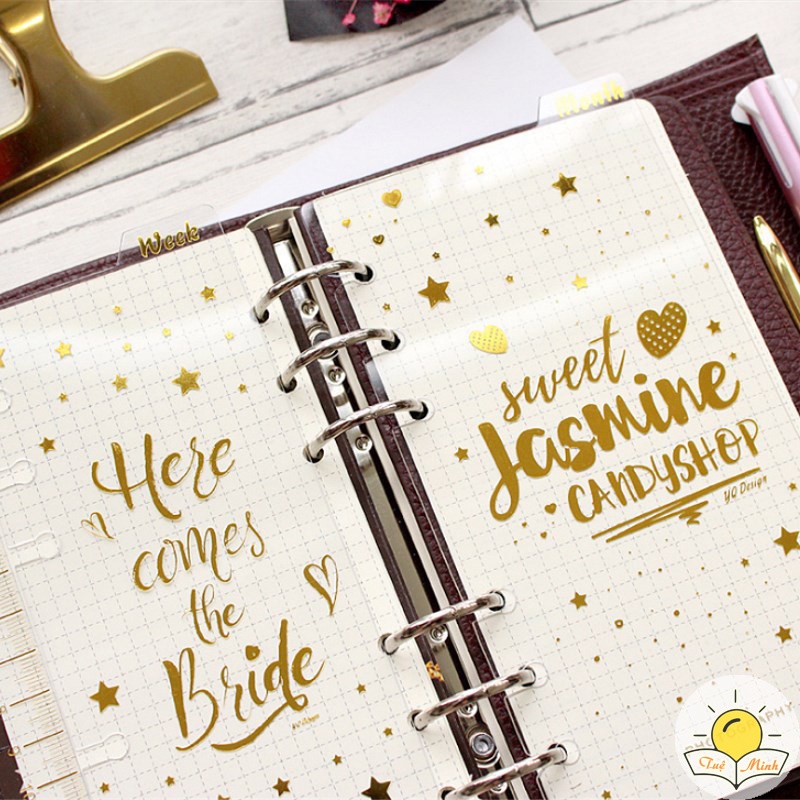 Month
Week
Here
comes
the
Bride
YQ Design
sweet
Jasmine
CANDYSHOP
YQ Design
Tuệ Minh